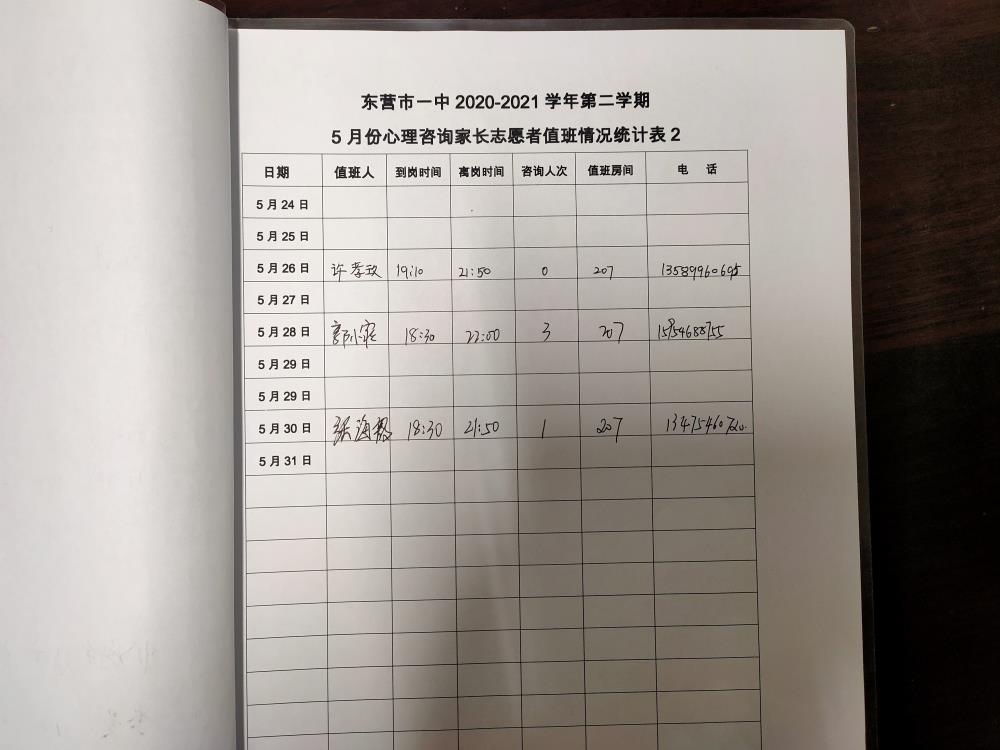 东营市一中 2020-2021 学年第二学期
5 月份心理咨询家长志愿者值班情况统计表 2
日期 值班人 到岗时间 离岗时间 咨询人次 值班房间 电 话
5 月 24 日
5 月 25 日
5 月 26 日 许孝玫 19:10 21:50 0 207 13589960695
5 月 27 日
5 月 28 日 18:30 22:00 3 207
5 月 29 日
5 月 29 日
5 月 30 日 张海 18:30 21:50 1 207
5 月 31 日